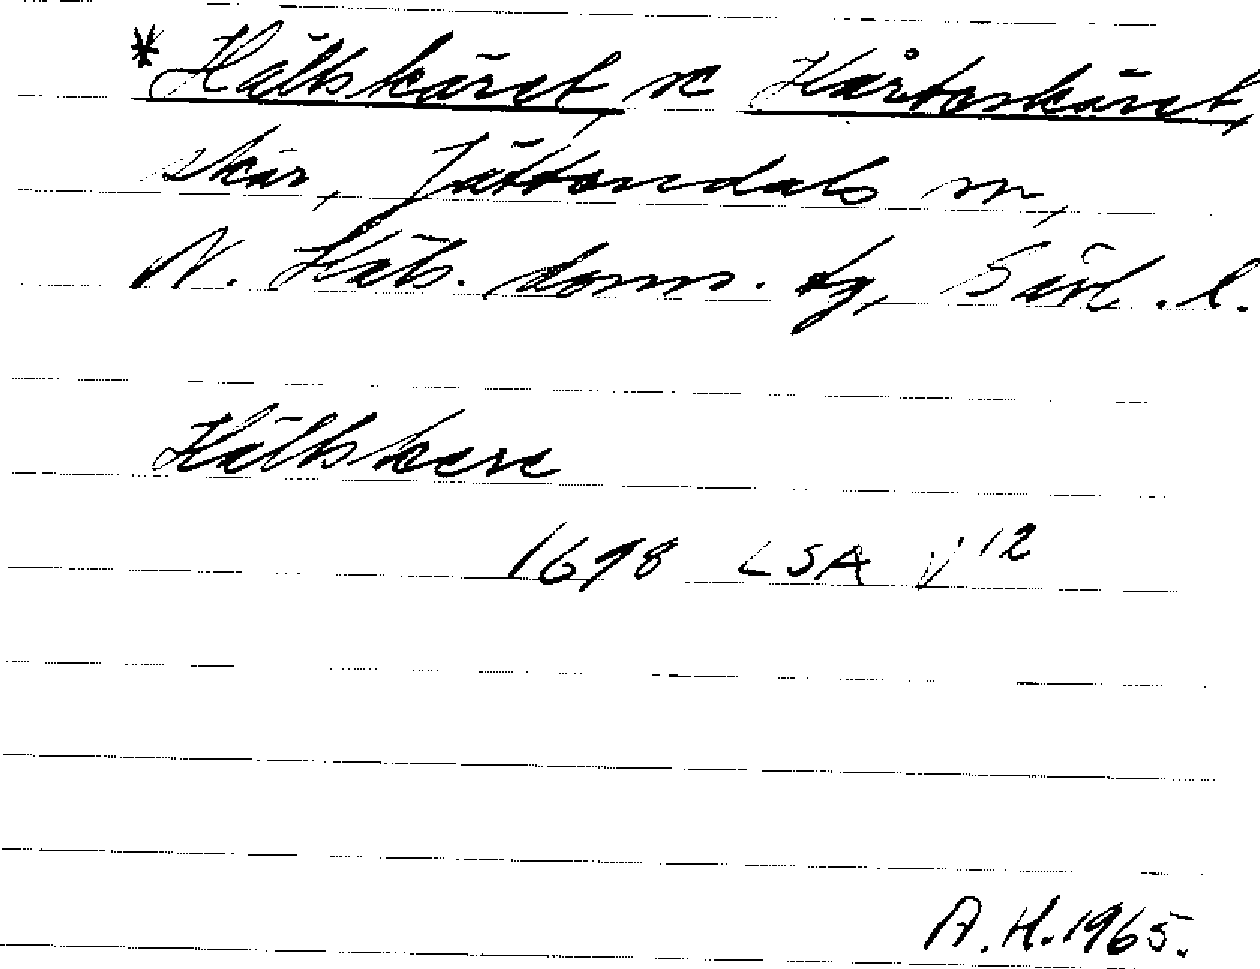 *Hälkskäret sc Hårtaskäret,
skär, Jättendals sn,
N. Häls. doms. tg, Gävl. l.
Hälkskere
1698 LSA V 12
A. H. 1965.